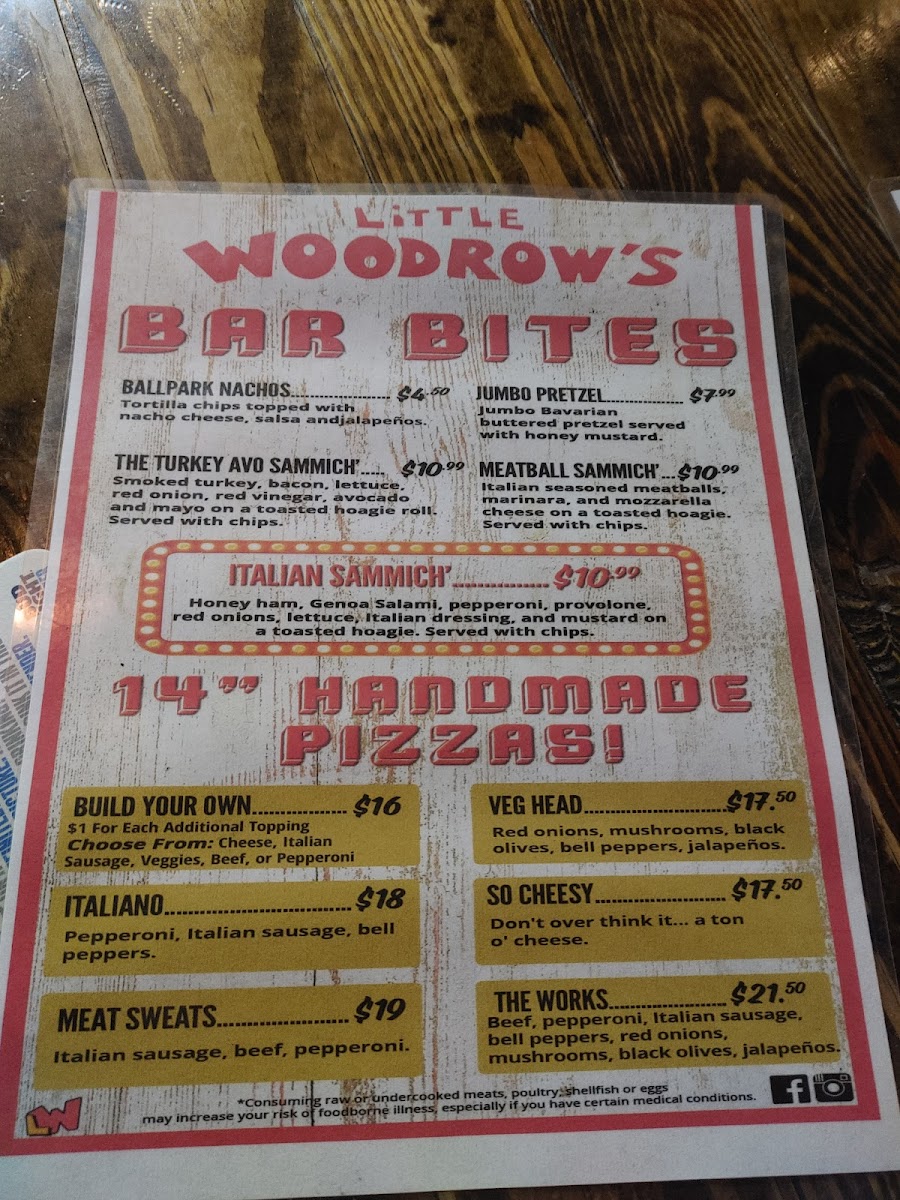 LiTTLE
WOODROW'S
BAR BITES
BALLPARK NACHOS...................... $4.50
Tortilla chips topped with
nacho cheese, salsa andjalapeños.
JUMBO PRETZEL................. $7.99
Jumbo Bavarian
buttered pretzel served
with honey mustard.
THE TURKEY AVO SAMMICH'..... $10.99
Smoked turkey, bacon, lettuce,
red onion, red vinegar, avocado
and mayo on a toasted hoagie roll.
Served with chips.
MEATBALL SAMMICH'...$10.99
Italian seasoned meatballs,
marinara, and mozzarella
cheese on a toasted hoagie.
Served with chips.
ITALIAN SAMMICH'.............$10.99
Honey ham, Genoa Salami, pepperoni, provolone,
red onions, lettuce, Italian dressing, and mustard on
a toasted hoagie. Served with chips.
14" HANDMADE
PIZZAS!
BUILD YOUR OWN.............. $16
$1 For Each Additional Topping
Choose From: Cheese, Italian
Sausage, Veggies, Beef, or Pepperoni
VEG HEAD......................$17.50
Red onions, mushrooms, black
olives, bell peppers, jalapeños.
ITALIANO............................ $18
Pepperoni, Italian sausage, bell
peppers.
SO CHEESY.................... $17.50
Don't over think it... a ton
o' cheese.
MEAT SWEATS.................. $19
Italian sausage, beef, pepperoni.
THE WORKS.................. $21.50
Beef, pepperoni, Italian sausage,
bell peppers, red onions,
mushrooms, black olives, jalapeños.
*Consuming raw or undercooked meats, poultry, shellfish or eggs
may increase your risk of foodborne illness, especially if you have certain medical conditions.
LW